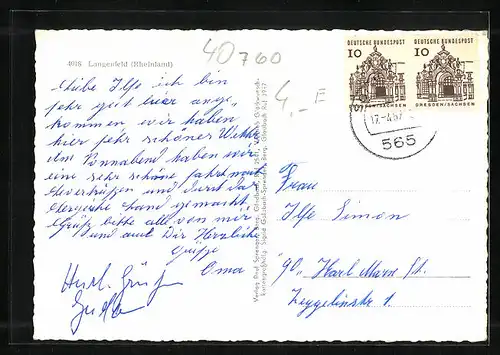 4018 Langenfeld (Rheinland)
40760
4,- E
Liebe Ilse ich bin
sehr gut hier ange,
kommen wir haben
hier sehr schönes Wetter
Im Sonnabend haben wir
eine sehr schöne fahrt nach
Leverkusen und
hand gemacht
Grüße bitte alle von mir
und auch Dir Herzliche
Grüße
Oma
Herzl. Grüße
DEUTSCHE BUNDESPOST
10
DRESDEN/SACHSEN
DEUTSCHE BUNDESPOST
10
DRESDEN/SACHSEN
17.-4.67
565
Frau
Ilse Simon
90, Karl Marx St.
Zeppelinstr. 1